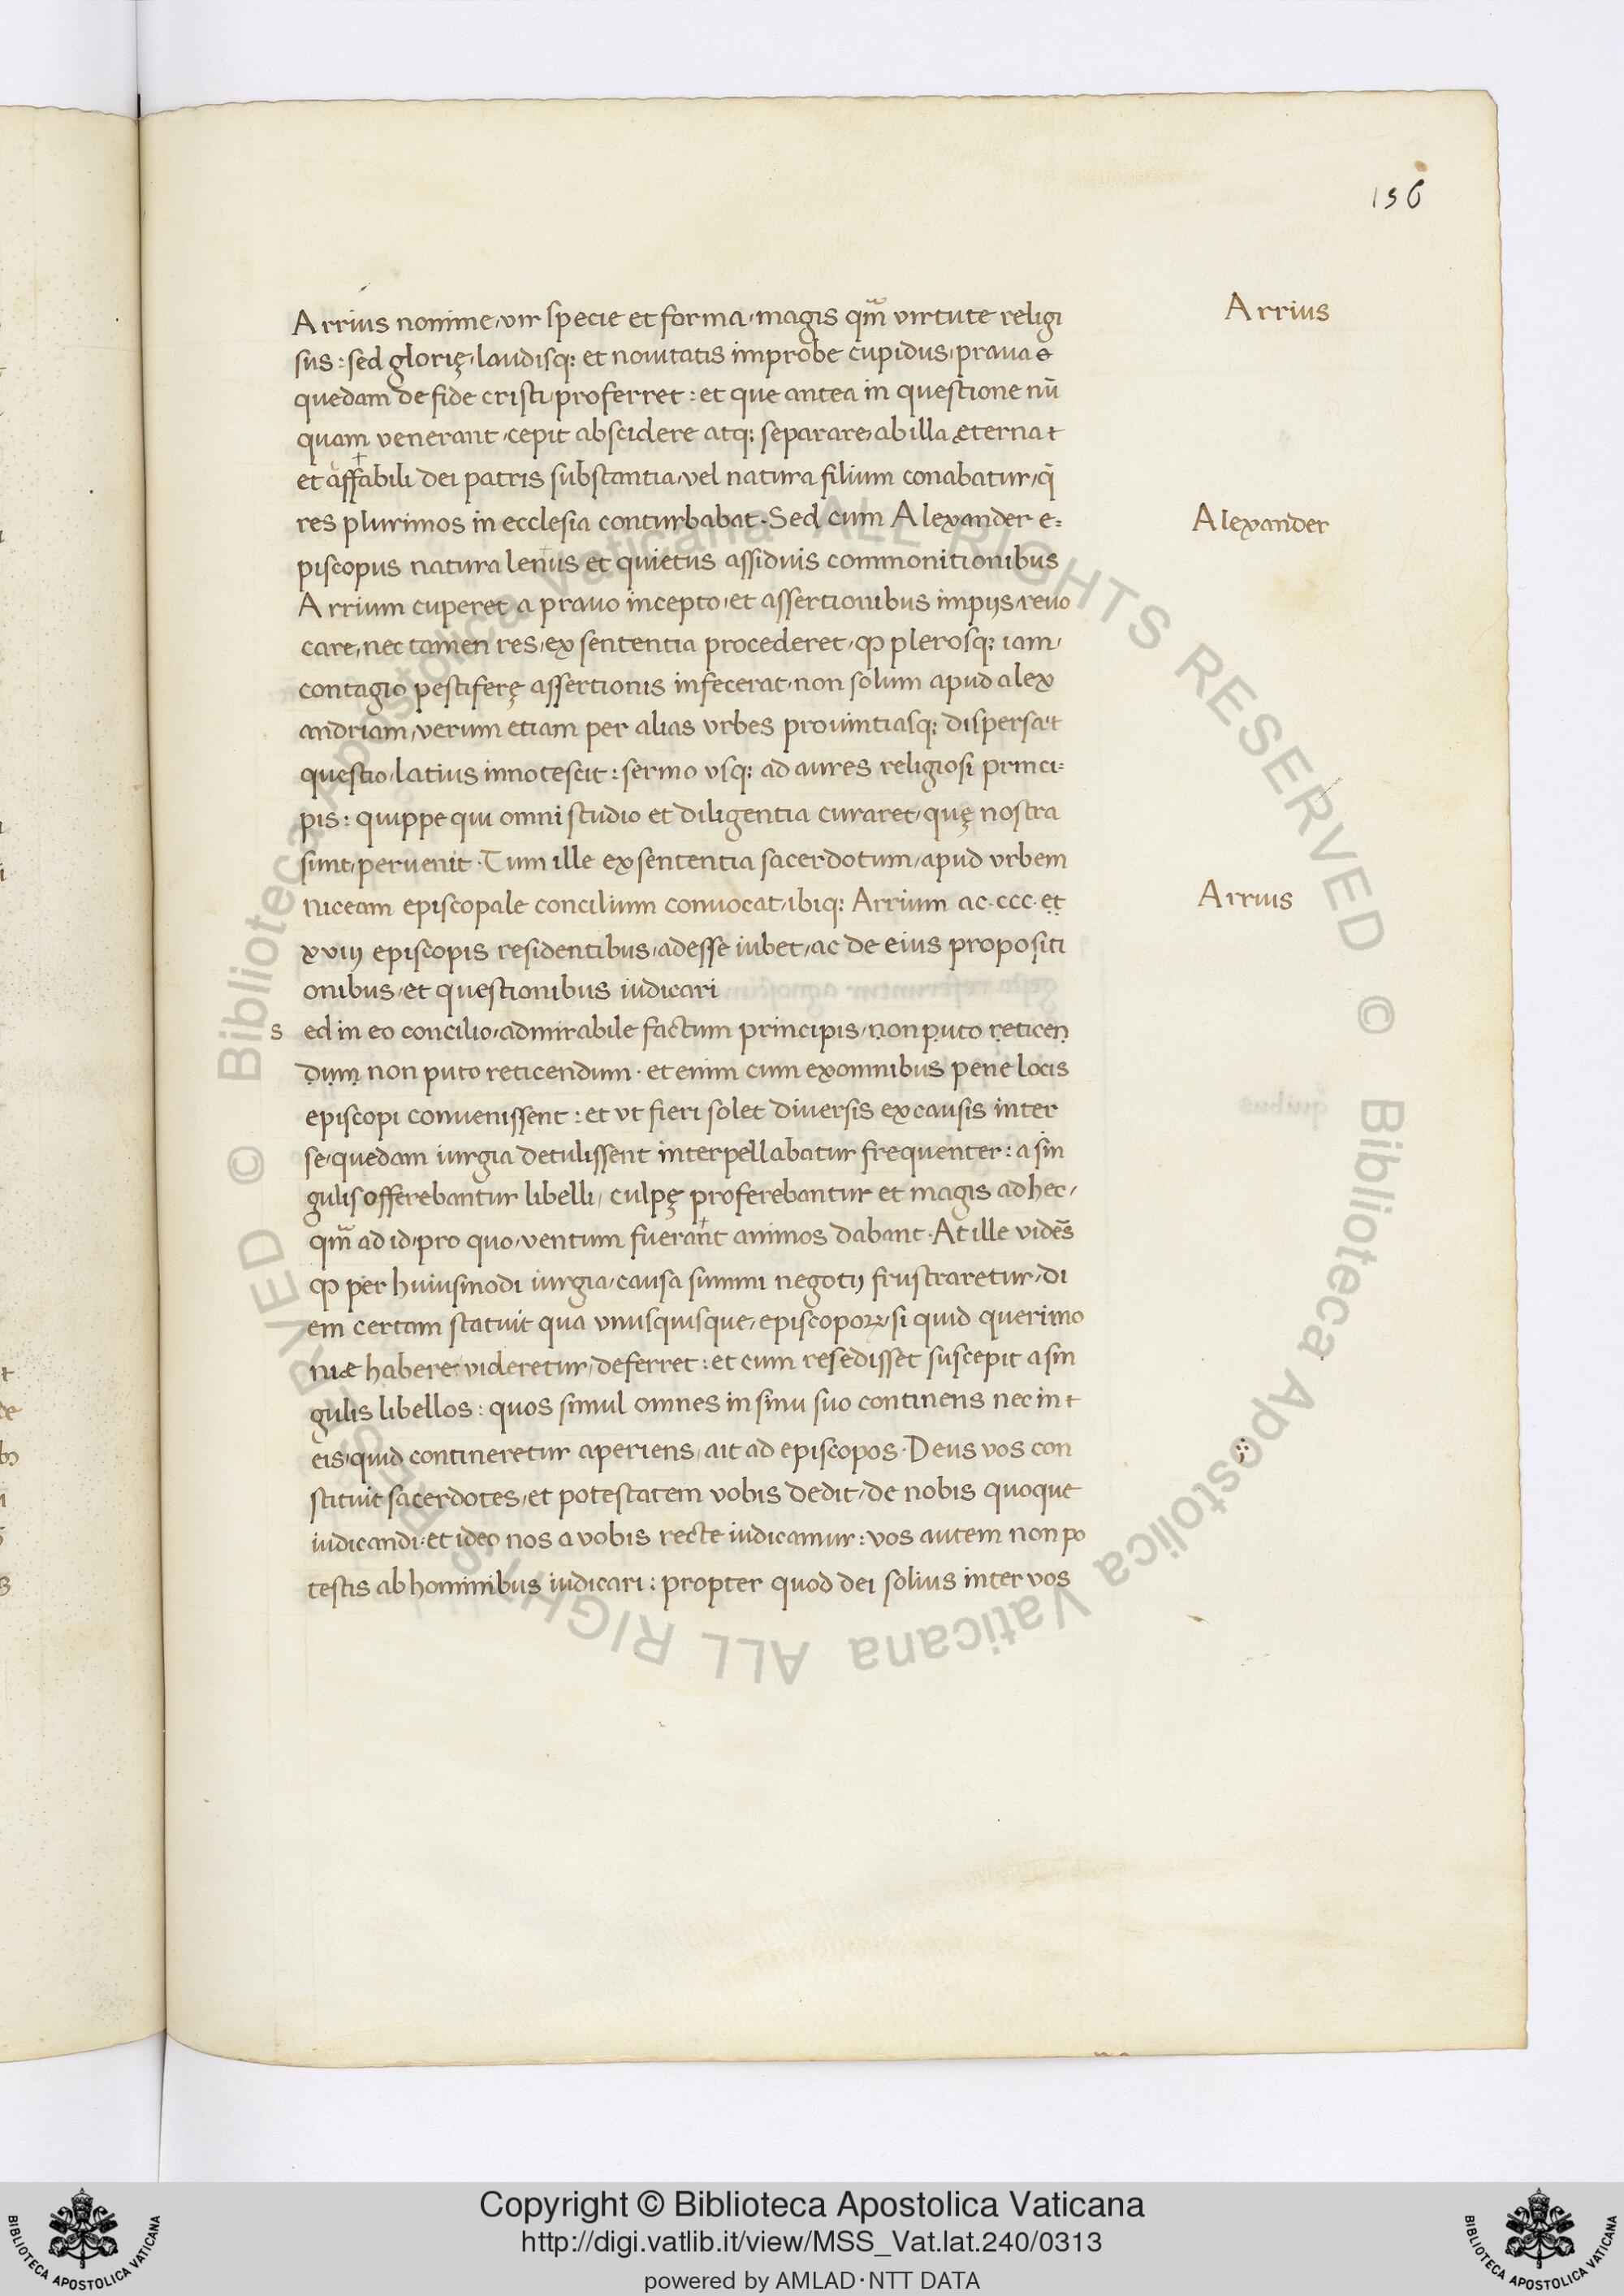 156
Arrius nomine, vir specie et forma, magis qm̃ virtute religi
Arrius
sus: sed glorię, laudisq; et novitatis improbe cupidus, prava e
quedam de fide cristi, proferret: et que antea in questione nū
quam venerant, cepit abscidere atq; separare, ab illa ęterna t
et affabili dei patris substantia, vel natura filium conabatur, q̄
res plurimos in ecclesia conturbabat. Sed cum Alexander e-
Alexander
piscopus natura lenus et quietus assiduis commonitionibus
Arrium cuperet a pravo incepto, et assertionibus impijs, revo
care, nec tamen res, ex sententia procederet, ꝙ plerosq; iam,
contagio pestiferę assertionis infecerat, non solum apud alex
andriam, verum etiam per alias vrbes provintiasq; dispersa t
questio, latius innotescit: sermo vsq; ad aures religiosi princi-
pis: quippe qui omni studio et diligentia curaret, quę nostra
sunt, pervenit. Tum ille ex sententia sacerdotum, apud vrbem
niceam episcopale concilium convocat, ibiq; Arrium ac. ccc. et
Arrius
xviij episcopis residentibus, adesse iubet, ac de eius propositi
onibus, et questionibus iudicari
s ed in eo concilio, admirabile factum principis, non puto reticen
dum non puto reticendum. et enim cum ex omnibus pene locis
episcopi convenissent: et vt fieri solet diversis ex causis inter
se, quedam iurgia detulissent interpellabatur frequenter: a sin
gulis offerebantur libelli, culpę proferebantur et magis ad hec,
qm̃ ad id, pro quo, ventum fuerant animos dabant. At ille vidēs
ꝙ per huiusmodi iurgia, causa summi negotij frustraretur, di
em certam statuit qua vnusquisque, episcoporꝝ, si quid querimo
niæ habere videretur, deferret: et cum resedisset suscepit a sin
gulis libellos: quos simul omnes in sinu suo continens nec in t
eis, quid contineretur aperiens, ait ad episcopos. Deus vos con
stituit sacerdotes, et potestatem vobis dedit, de nobis quoque
iudicandi: et ideo nos a vobis recte iudicamur: vos autem non po
testis ab hominibus iudicari: propter quod dei solius inter vos
© Biblioteca Apostolica Vaticana ALL RIGHTS RESERVED
© Biblioteca Apostolica Vaticana ALL RIGHTS RESERVED
Copyright © Biblioteca Apostolica Vaticana
http://digi.vatlib.it/view/MSS_Vat.lat.240/0313
powered by AMLAD·NTT DATA
BIBLIOTECA APOSTOLICA VATICANA
BIBLIOTECA APOSTOLICA VATICANA